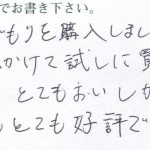 でお書き下さい。
どもりを購入しまし
かけて試しに買
とてもおいしか
とても好評で